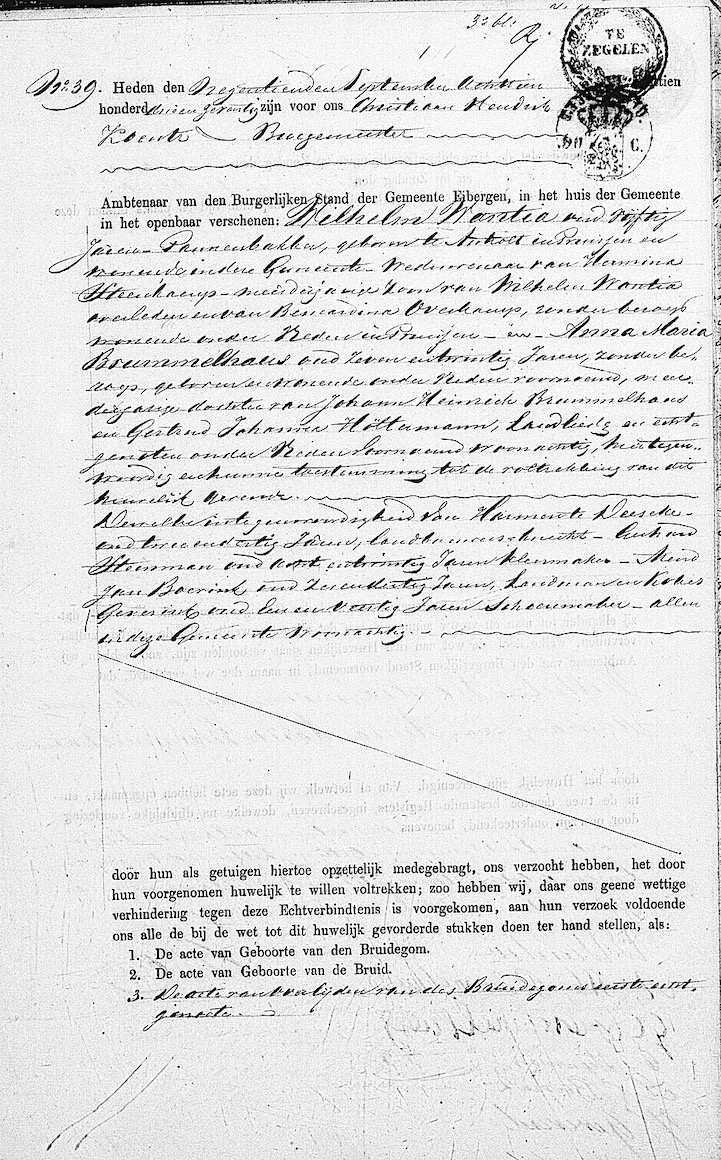 3e bl.
TE
ZEGELEN
No. 39. Heden den Negentienden September Achttien
honderd drie en zeventig zijn voor ons Christiaan Hendrik
Burgemeester
C.
Ambtenaar van den Burgerlijken Stand der Gemeente Eibergen, in het huis der Gemeente
in het openbaar verschenen: Wilhelm Wantia oud vijftig
Jaren Pannenbakker, geboren te Anholt in Pruisen en
wonende in deze Gemeente Weduwenaar van Hermina
Steenkamp meerderjarige Zoon van Wilhelm Wantia
overleden en van Bernardina Overkamp, zonder beroep
wonende onder Reden in Pruisen en Anna Maria
Brummelhaus oud Zeven en twintig Jaren, zonder be-
roep, geboren en wonende onder Reden voornoemd, meer-
derjarige dochter van Johann Heinrich Brummelhaus
en Gertrud Johanna Höltermann, Landlieden en echt-
genoten onder Reden voornoemd woonachtig, hier tegen-
woordig en hunne toestemming tot de voltrekking van dit
huwelijk gevende.
Dewelke in tegenwoordigheid van Harmen te
oud twee en dertig Jaren, landbouwersknecht Gerhard
oud acht en twintig Jaren klompmaker
Jan Boerink oud Zes en dertig Jaren, Landman en
oud Een en Veertig Jaren Schoenmaker allen
in deze Gemeente woonachtig.
door hun als getuigen hiertoe opzettelijk medegebragt, ons verzocht hebben, het door
hun voorgenomen huwelijk te willen voltrekken; zoo hebben wij, daar ons geene wettige
verhindering tegen deze Echtverbindtenis is voorgekomen, aan hun verzoek voldoende
ons alle de bij de wet tot dit huwelijk gevorderde stukken doen ter hand stellen, als:
1. De acte van Geboorte van den Bruidegom.
2. De acte van Geboorte van de Bruid.
3. De acte van overlijden van des Bruidegoms eerste echt-
genoote.